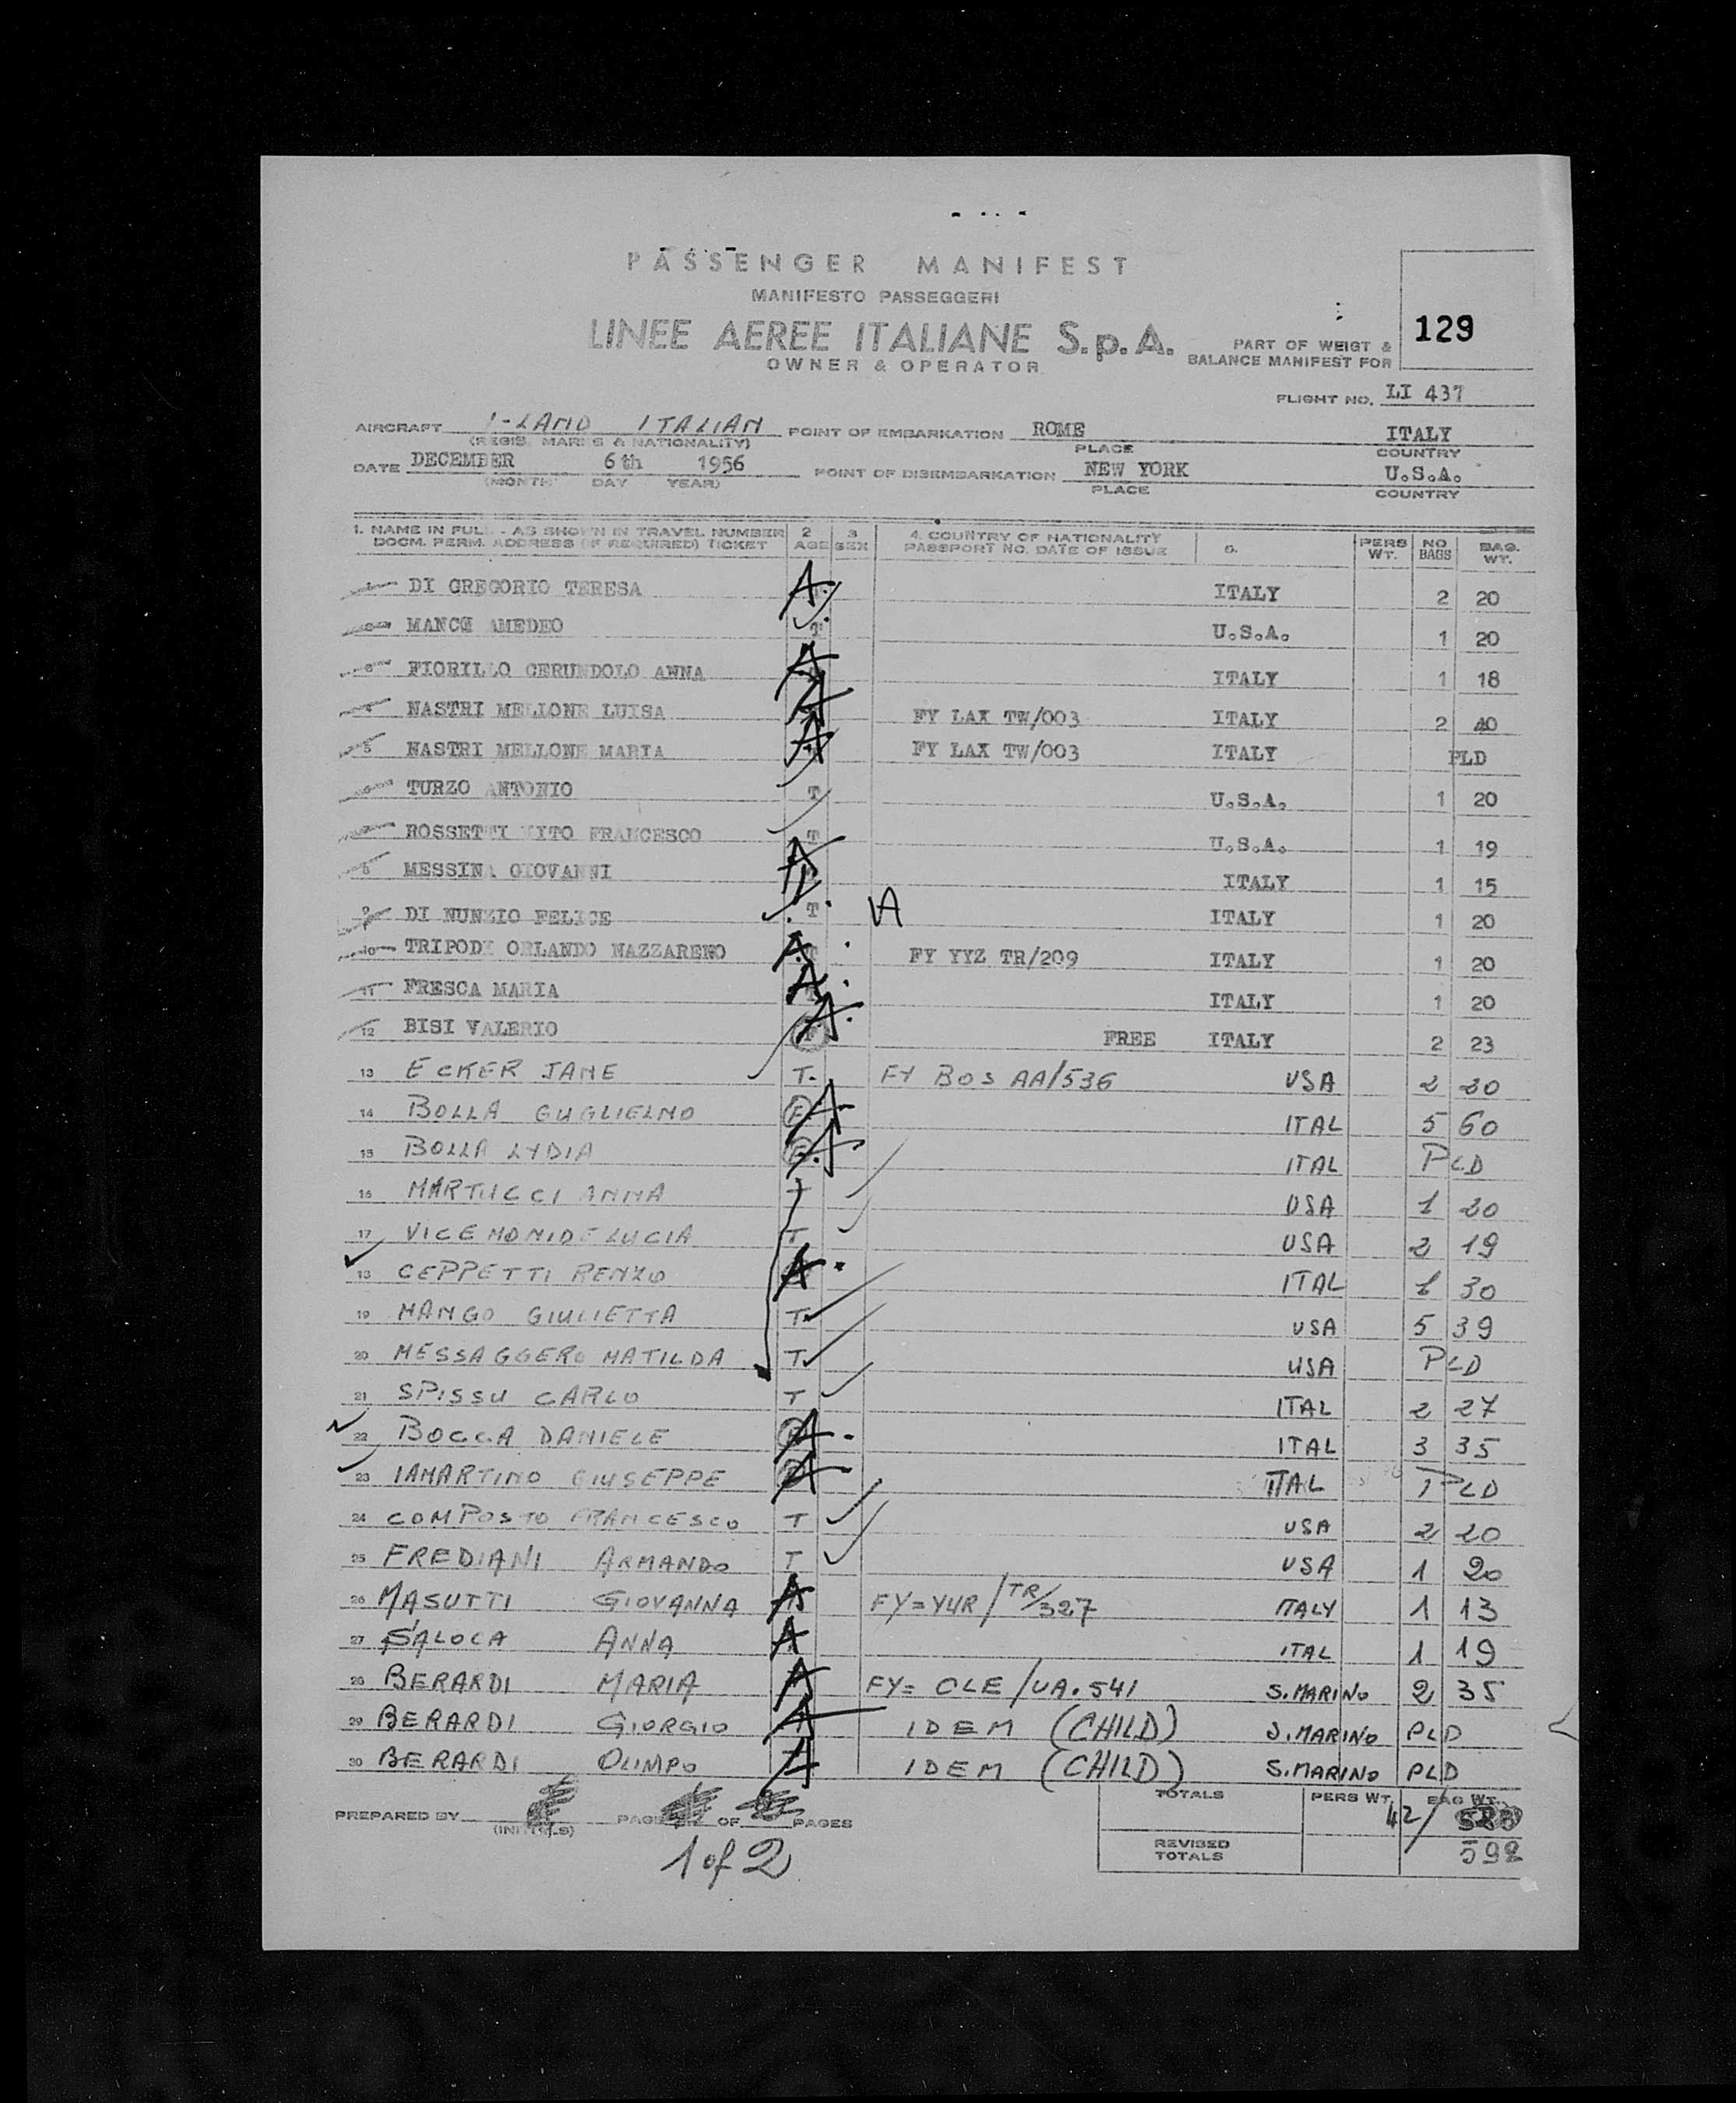 PASSENGER MANIFEST
MANIFESTO PASSEGGERI
LINEE AEREE ITALIANE S.p.A.
OWNER & OPERATOR
PART OF WEIGT &
BALANCE MANIFEST FOR
129
FLIGHT NO. LI 437
AIRCRAFT I-LAND ITALIAN POINT OF EMBARKATION ROME ITALY
(REGIS. MARKS & NATIONALITY) PLACE COUNTRY
DATE DECEMBER 6th 1956 POINT OF DISEMBARKATION NEW YORK U.S.A.
(MONTH DAY YEAR) PLACE COUNTRY
1. NAME IN FULL - AS SHOWN IN TRAVEL NUMBER 2 3 4. COUNTRY OF NATIONALITY PERS NO BAG.
DOCM. PERM. ADDRESS (IF REQUIRED) TICKET AGE SEX PASSPORT NO. DATE OF ISSUE WT. BAGS WT.
1 DI GREGORIO TERESA A. ITALY 2 20
2 AMEDEO T U.S.A. 1 20
3 FIORILLO CERUNDOLO ANNA A ITALY 1 18
4 NASTRI MELLONE LUISA A FY LAX TW/003 ITALY 2 40
5 NASTRI MELLONE MARIA A FY LAX TW/003 ITALY PLD
6 TURZO ANTONIO T U.S.A. 1 20
7 ROSSETTI VITO FRANCESCO T U.S.A. 1 19
8 MESSINA GIOVANNI A ITALY 1 15
9 DI NUNZIO FELICE T VA ITALY 1 20
10 TRIPODI ORLANDO NAZZARENO A. FY YYZ TR/209 ITALY 1 20
11 FRESCA MARIA A. ITALY 1 20
12 BISI VALERIO F A. FREE ITALY 2 23
13 ECKER JANE T. FY BOS AA/536 USA 2 20
14 BOLLA GUGLIELMO F A ITAL 5 60
15 BOLLA LYDIA F A ITAL PLD
16 MARTUCCI ANNA T USA 1 20
17 VICEMONIDE LUCIA T USA 2 19
18 CEPPETTI RENZO A. ITAL 1 30
19 MANGO GIULIETTA T USA 5 39
20 MESSAGGERO MATILDA T USA PLD
21 SPISSU CARLO T ITAL 2 27
22 BOCCA DANIELE F A. ITAL 3 35
23 IAMARTINO GIUSEPPE A ITAL PLD
24 COMPOSTO FRANCESCO T USA 2 20
25 FREDIANI ARMANDO T USA 1 20
26 MASUTTI GIOVANNA A FY=YUR/TR/327 ITALY 1 13
27 SALOCA ANNA A ITAL 1 19
28 BERARDI MARIA A FY= CLE/UA.541 S.MARINO 2 35
29 BERARDI GIORGIO A IDEM (CHILD) S.MARINO PLD
30 BERARDI OLIMPO A IDEM (CHILD) S.MARINO PLD
TOTALS PERS WT. BAG WT.
42/
PREPARED BY PAGE OF PAGES
(INITIALS)
REVISED
TOTALS
592
1 of 2